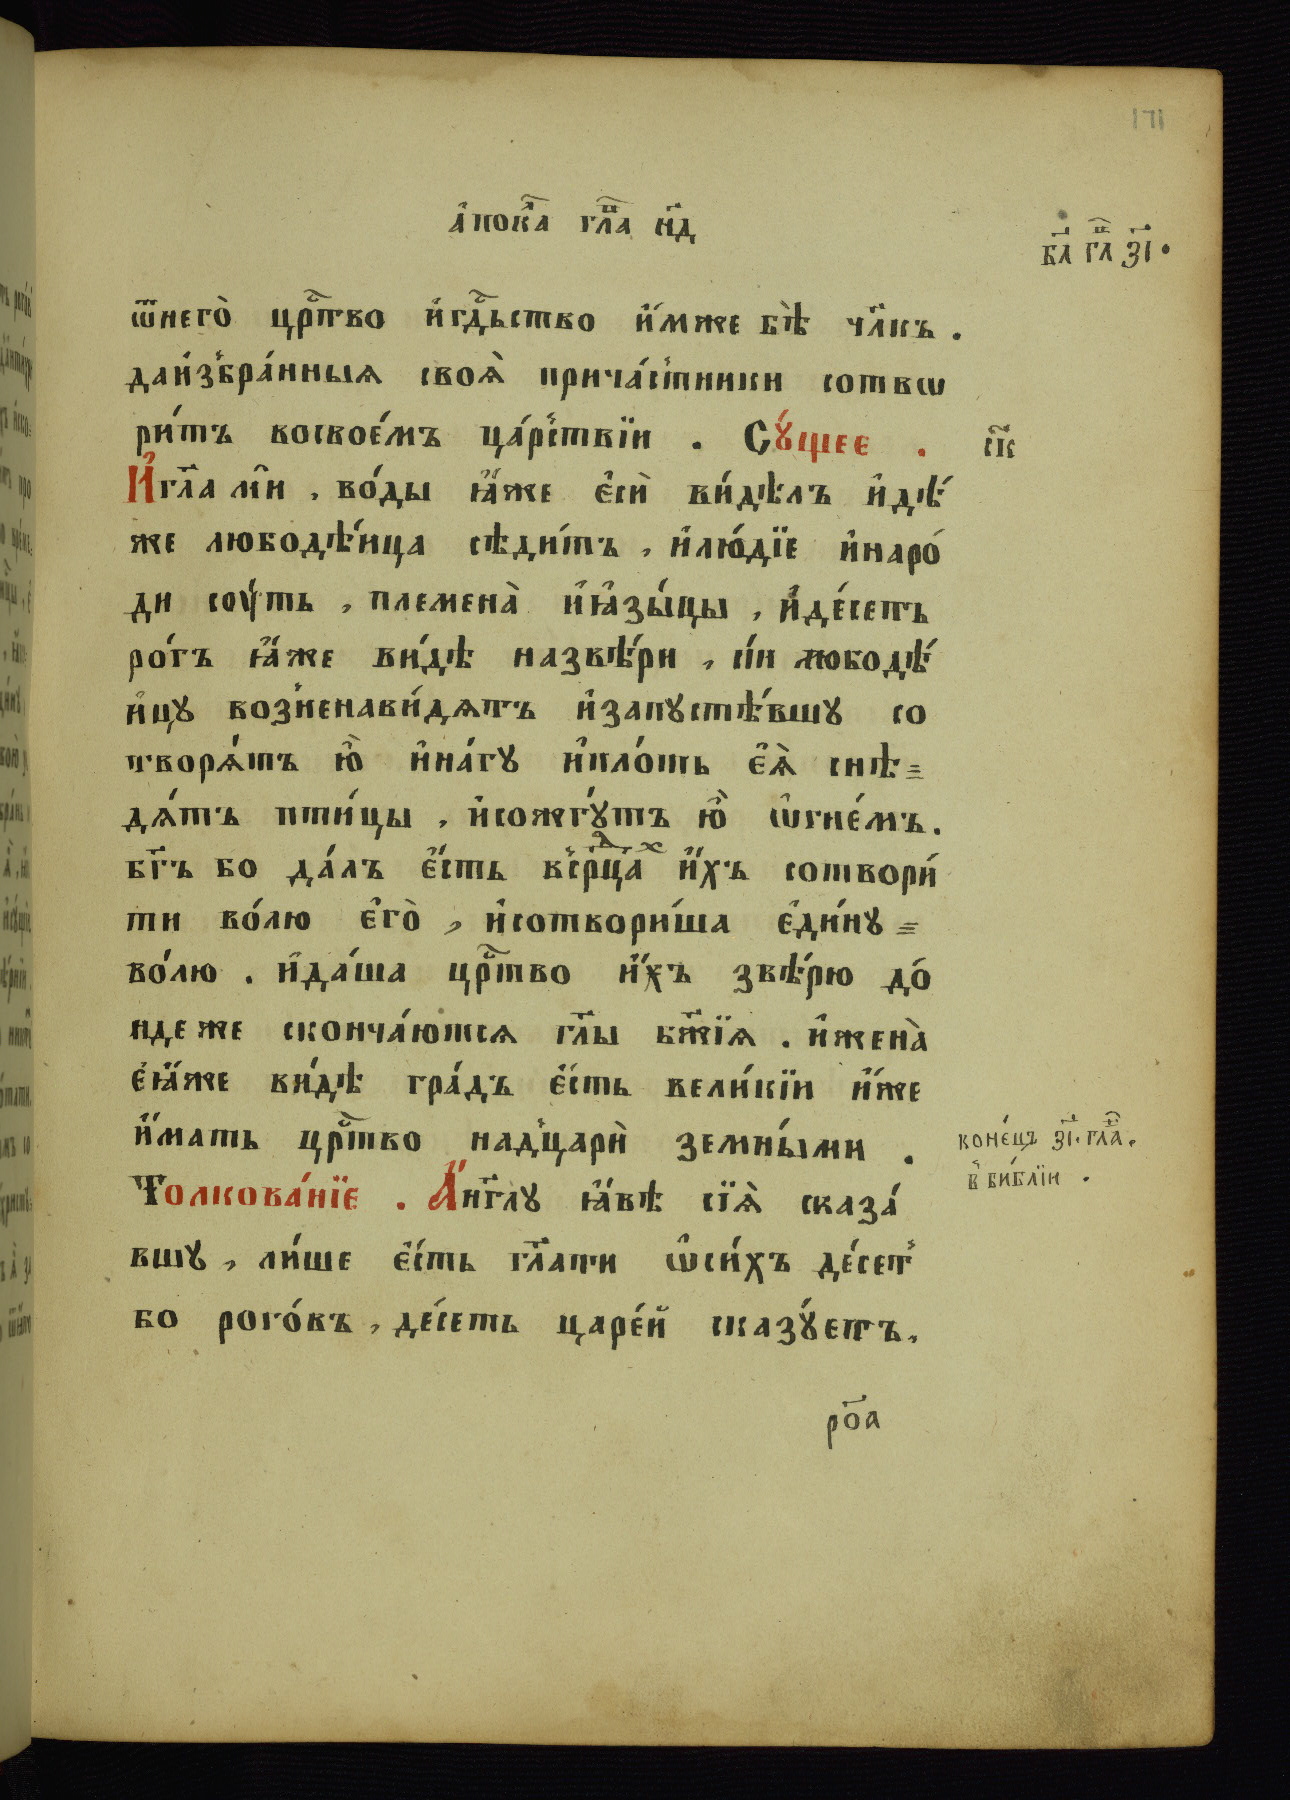 171
а҆пока́л гл҃а н҃д
бл҃ гл҃ з҃і.
ѿнего̀ црⷭ҇тво и҆гдⷭ҇ьство и҆́мже бѣ̀ чл҃къ .
даи҆збра́нныѧ своѧ̀ прича́стники сотвѡ
ри́тъ восвое́мъ ца́рствїи . Сꙋ́щее . с҃к
И҆гл҃а мѝ , во́ды ꙗ҆́же є҆сѝ ви́дѣлъ и҆дѣ́
же любодѣ́ица сѣди́тъ , и҆лю́дїе и҆наро́
ди соу́ть , племена̀ и҆ꙗ҆зы́цы , и҆де́сеть
ро́гъ ꙗ҆́же ви́дѣ назвѣ́ри , сі́и любодѣ́
ицꙋ возненави́дѧтъ и҆запꙋстѣ́вшꙋ со
творѧ́тъ ю҆̀ и҆на́гꙋ и҆пло́ть є҆ѧ̀ снѣ=
дѧ́тъ пти́цы , и҆сожгꙋ́тъ ю҆̀ ѡ҆гне́мъ.
бг҃ъ бо да́лъ є҆́сть всрⷣцаⷯ и҆́хъ сотвори́
ти во́лю є҆го̀ , и҆сотвори́ша є҆ди́нꙋ =
во́лю . и҆да́ша црⷭ҇тво и҆́хъ звѣ́рю до́
ндеже сконча́ютсѧ гл҃ы бж҃їѧ . и҆жена̀
є҆ꙗ҆́же ви́дѣ гра́дъ є҆́сть вели́кїи и҆́же
и҆́мать црⷭ҇тво надцарѝ земны́ми .
конє́цъ з҃і. гла́в.
в҆ би́блїи .
Толкова́нїе . А҆́нг҃лꙋ ꙗ҆́вѣ сїѧ̀ сказа́
вшꙋ , ли́ше є҆́сть гл҃ати ѡ҆си́хъ де́сет
бо рого́въ , де́сеть царе́й сказꙋ́етъ ,
ро҃а